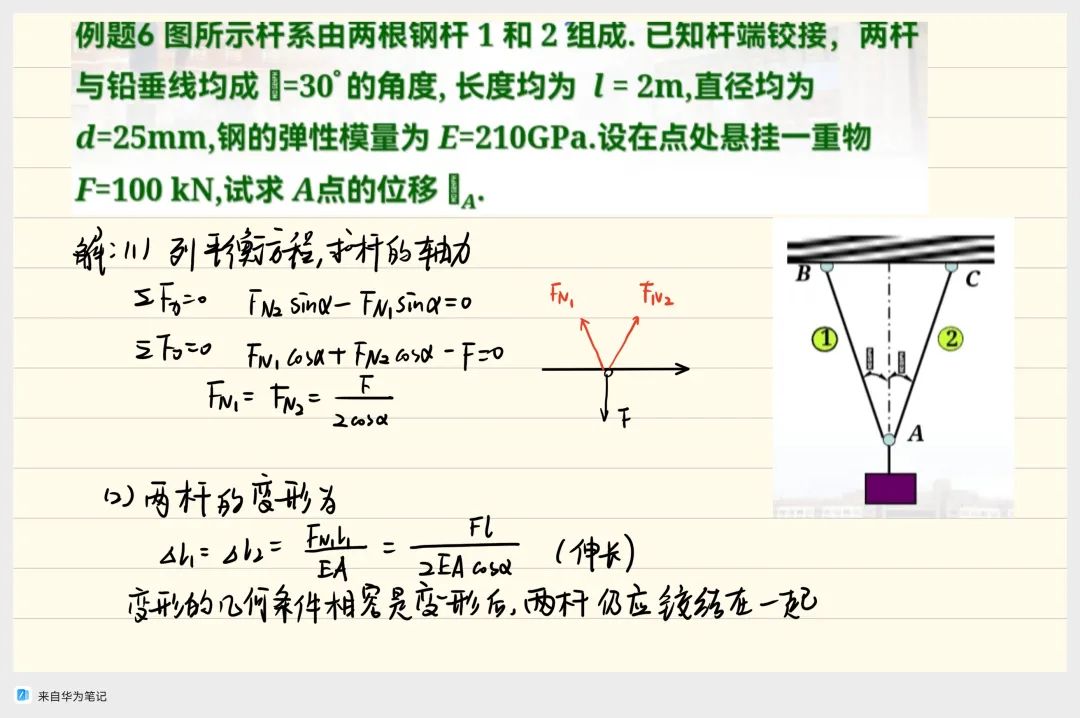 例题6 图所示杆系由两根钢杆 1 和 2 组成. 已知杆端铰接，两杆
与铅垂线均成 =30°的角度, 长度均为 l = 2m,直径均为
d=25mm,钢的弹性模量为 E=210GPa.设在点处悬挂一重物
F=100 kN,试求 A点的位移 A.
解:(1) 列平衡方程,求杆的轴力
ΣFx=0 FN2 sinα - FN1 sinα=0
ΣFy=0 FN1 cosα + FN2 cosα - F=0
FN1 = FN2 = F / 2cosα
FN1 FN2
F
B C
1 2
A
(2) 两杆的变形为
Δl1 = Δl2 = FN1l1 / EA = Fl / 2EA cosα (伸长)
变形的几何条件相容是变形后,两杆仍应铰结在一起
来自华为笔记